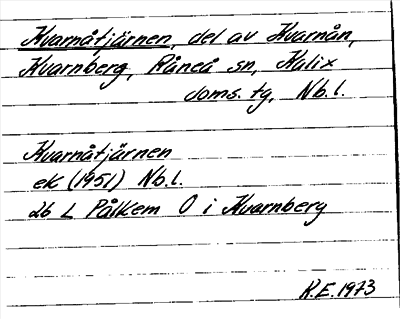 Kvarnåtjärnen, del av Kvarnån,
Kvarnberg, Råneå sn, Kalix
doms. tg, Nb.l.
Kvarnåtjärnen
ek (1951) Nb.l.
26 L Pålkem O i Kvarnberg
K.E. 1973